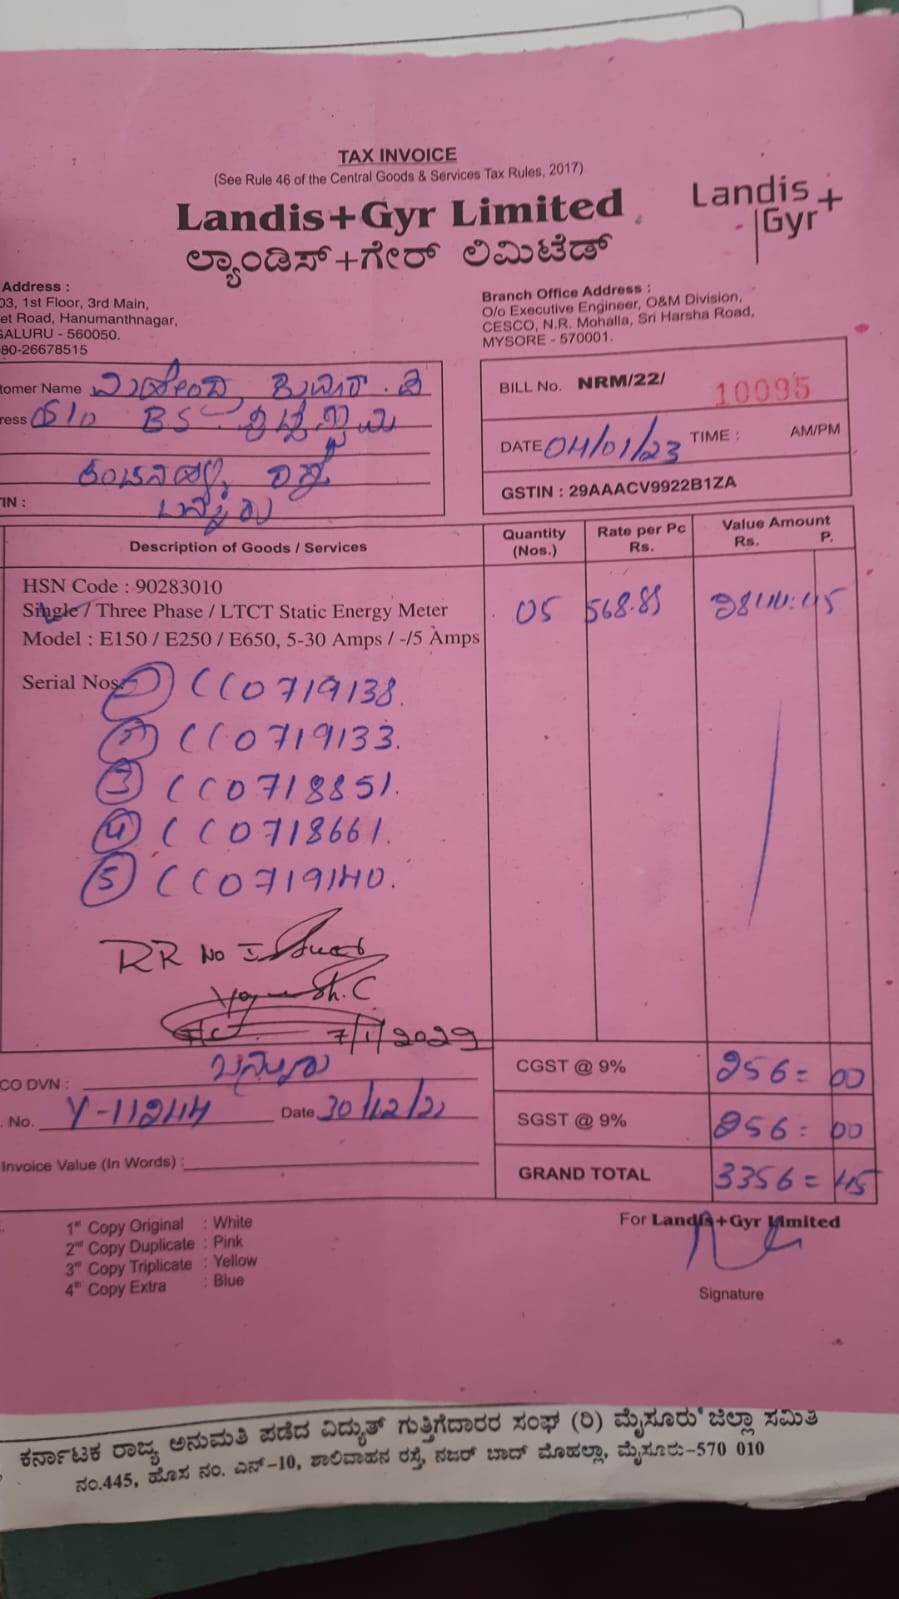 TAX INVOICE
(See Rule 46 of the Central Goods & Services Tax Rules, 2017)
Landis+Gyr Limited
ಲ್ಯಾಂಡಿಸ್+ಗೇರ್ ಲಿಮಿಟೆಡ್
Landis+
Gyr
Address :
03, 1st Floor, 3rd Main,
et Road, Hanumanthnagar,
GALURU - 560050.
080-26678515
Branch Office Address :
O/o Executive Engineer, O&M Division,
CESCO, N.R. Mohalla, Sri Harsha Road,
MYSORE - 570001.
tomer Name
ress S/o B.S
ರಸ್ತೆ
TIN :
ಬನ್ನೂರು
BILL No. NRM/22/ 10095
DATE 04/01/23 TIME : AM/PM
GSTIN : 29AAACV9922B1ZA
Description of Goods / Services
Quantity (Nos.)
Rate per Pc Rs.
Value Amount Rs. P.
HSN Code : 90283010
Single / Three Phase / LTCT Static Energy Meter 05 568.89 2844:45
Model : E150 / E250 / E650, 5-30 Amps / -/5 Amps
Serial Nos. 1 CC0719138.
2 CC0719133.
3 CC0718851.
4 CC0718661.
5 CC0719140.
RR No
7/1/2023
CO DVN : ಬನ್ನೂರು
. No. Y-112114 Date 30/12/22
Invoice Value (In Words) :
CGST @ 9% 256= 00
SGST @ 9% 256= 00
GRAND TOTAL 3356= 45
1st Copy Original : White
2nd Copy Duplicate : Pink
3rd Copy Triplicate : Yellow
4th Copy Extra : Blue
For Landis+Gyr Limited
Signature
ಕರ್ನಾಟಕ ರಾಜ್ಯ ಅನುಮತಿ ಪಡೆದ ವಿದ್ಯುತ್ ಗುತ್ತಿಗೆದಾರರ ಸಂಘ (ರಿ) ಮೈಸೂರು ಜಿಲ್ಲಾ ಸಮಿತಿ
ನಂ.445, ಹೊಸ ನಂ. ಎನ್-10, ಶಾಲಿವಾಹನ ರಸ್ತೆ, ನಜರ್ ಬಾದ್ ಮೊಹಲ್ಲಾ, ಮೈಸೂರು-570 010